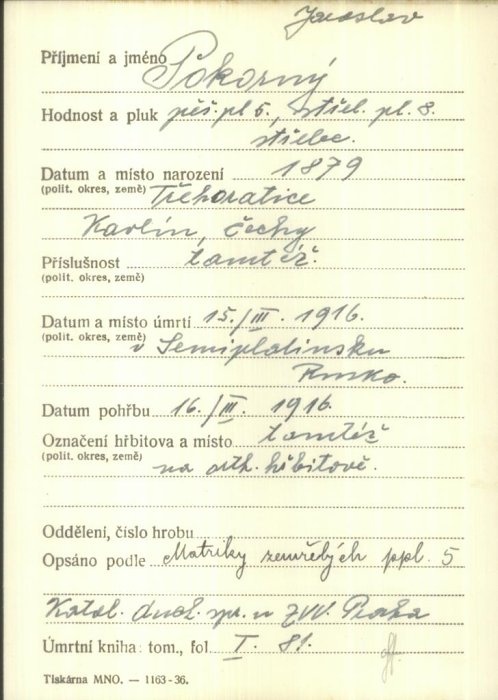 Jaroslav
Příjmení a jméno Pokorný
Hodnost a pluk pěš. pl 5., střel. pl. 8.
střelec.
Datum a místo narození 1879
(polit. okres, země) Třeboratice
Karlín, Čechy
Příslušnost tamtéž.
(polit. okres, země)
Datum a místo úmrtí 15./III. 1916.
(polit. okres, země) v Semipalatinsku
Rusko.
Datum pohřbu 16./III. 1916.
Označení hřbitova a místo tamtéž
(polit. okres, země) na orth. hřbitově.
Oddělení, číslo hrobu
Opsáno podle Matriky zemřelých ppl. 5
Katol. duch. spr. u ZVV. Praha
Úmrtní kniha: tom., fol. I. 81.
Tiskárna MNO. — 1163-36.